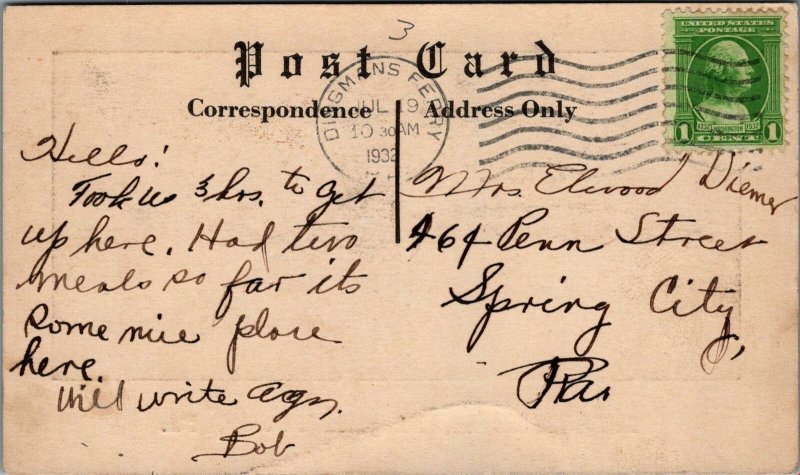 3
Post Card
Correspondence Address Only
DINGMANS FERRY
JUL 19
10 30 AM
1932
UNITED STATES
POSTAGE
1 WASHINGTON 1
CENT
Hello!
Took us 3 hrs. to get
up here. Had two
meals so far its
some nice place
here.
Will write agn.
Bob
Mrs. Elwood Diemer
464 Penn Street
Spring City,
Pa.